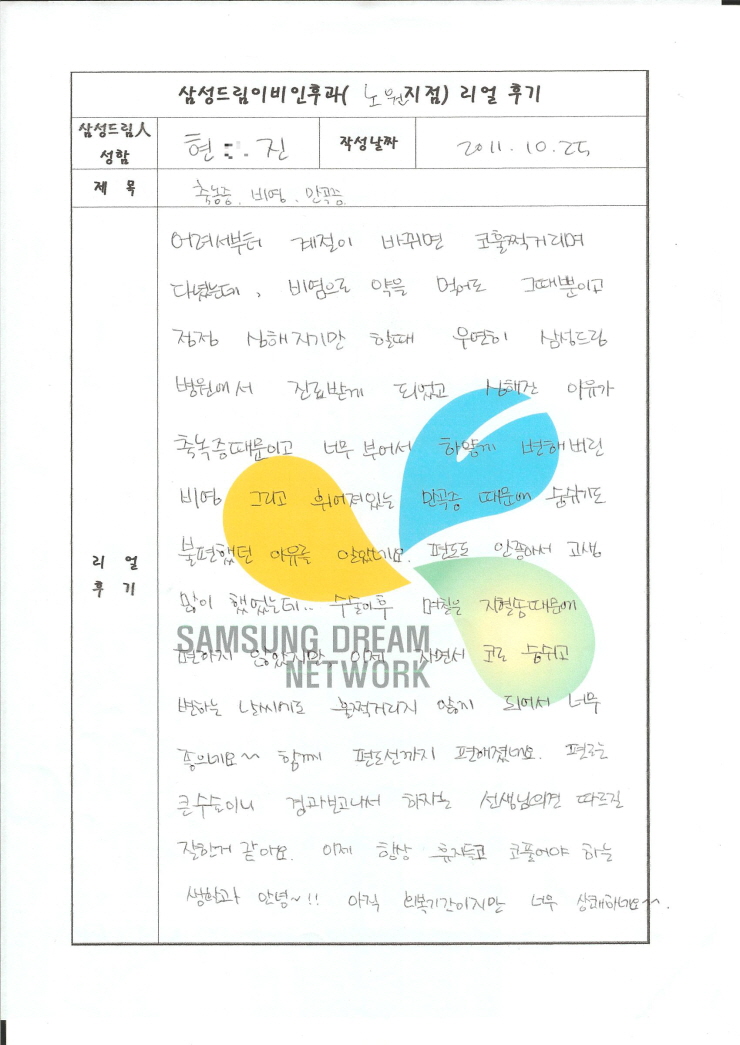 삼성드림이비인후과( 노원지점) 리얼 후기
삼성드림人 성함
현 진
작성날짜
2011. 10. 25
제 목
축농증. 비염. 만곡증
리 얼 후 기
어려서부터 계절이 바뀌면 코훌쩍거리며
다녔는데, 비염으로 약을 먹어도 그때뿐이고
점점 심해지기만 할때 우연히 삼성드림
병원에서 진료받게 되었고 심해진 이유가
축농증때문이고 너무 부어서 하얗게 변해버린
비염 그리고 휘어져있는 만곡증 때문에 숨쉬기도
불편했던 이유를 알았네요. 편도도 안좋아서 고생
많이 했었는데.. 수술이후 며칠은 지혈솜때문에
편하지 않았지만 이제 자면서 코로 숨쉬고
변하는 날씨에도 훌쩍거리지 않게 되어서 너무
좋으네요~ 함께 편도선까지 편해졌네요. 편도는
큰수술이니 경과보고나서 하자는 선생님의견 따르길
잘한거 같아요. 이제 항상 휴지들고 코풀어야 하는
생활과 안녕~!! 아직 회복기간이지만 너무 상쾌하네요~.
SAMSUNG DREAM
NETWORK